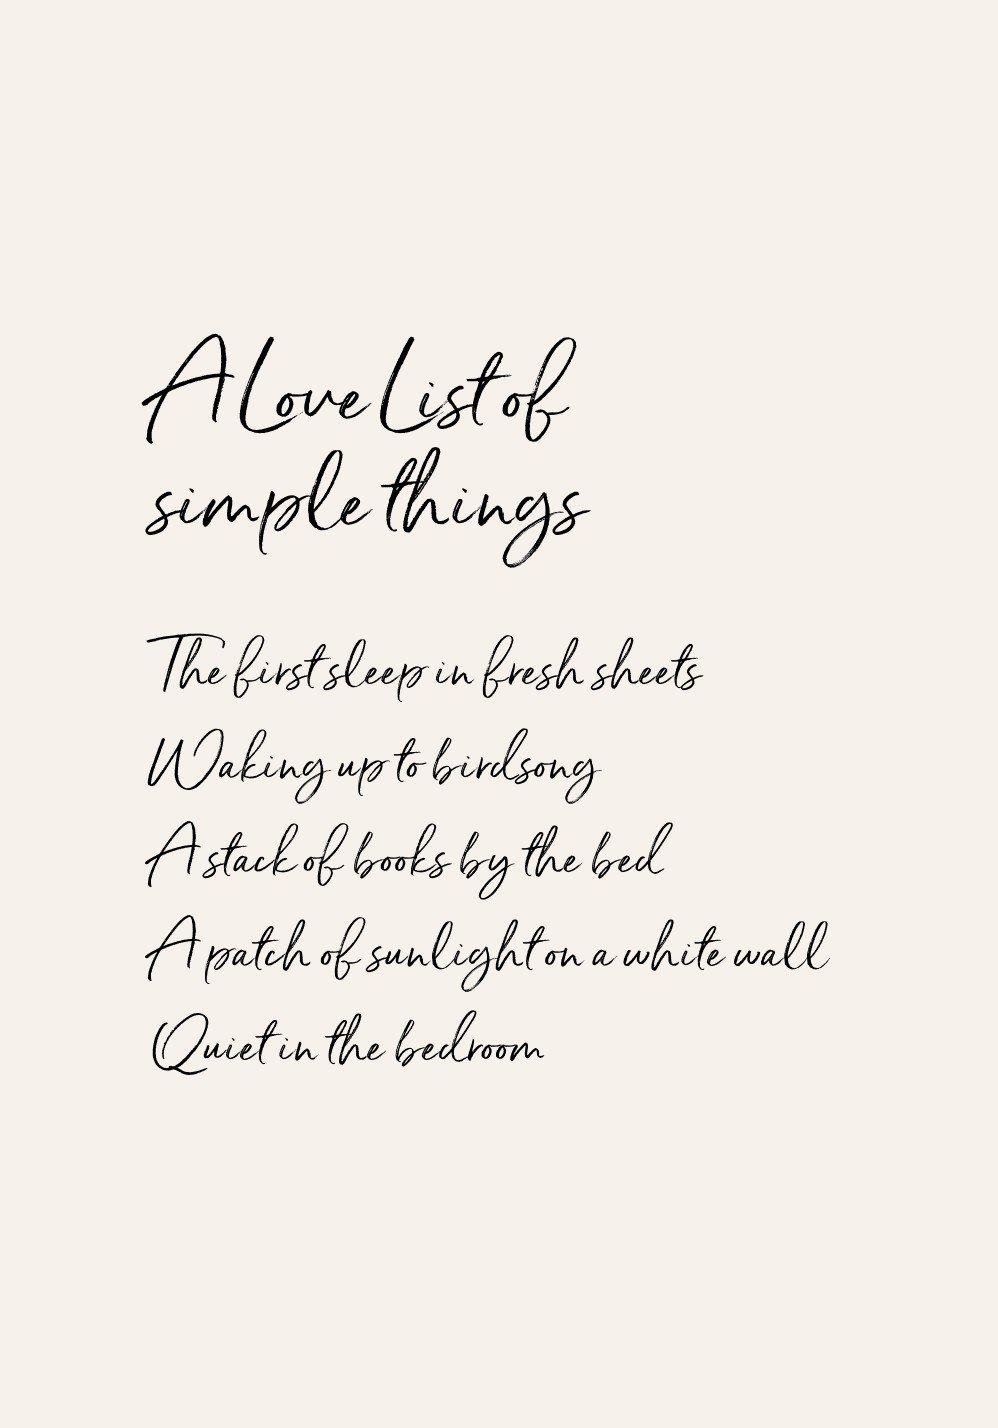 A Love List of
simple things
The first sleep in fresh sheets
Waking up to birdsong
A stack of books by the bed
A patch of sunlight on a white wall
Quiet in the bedroom